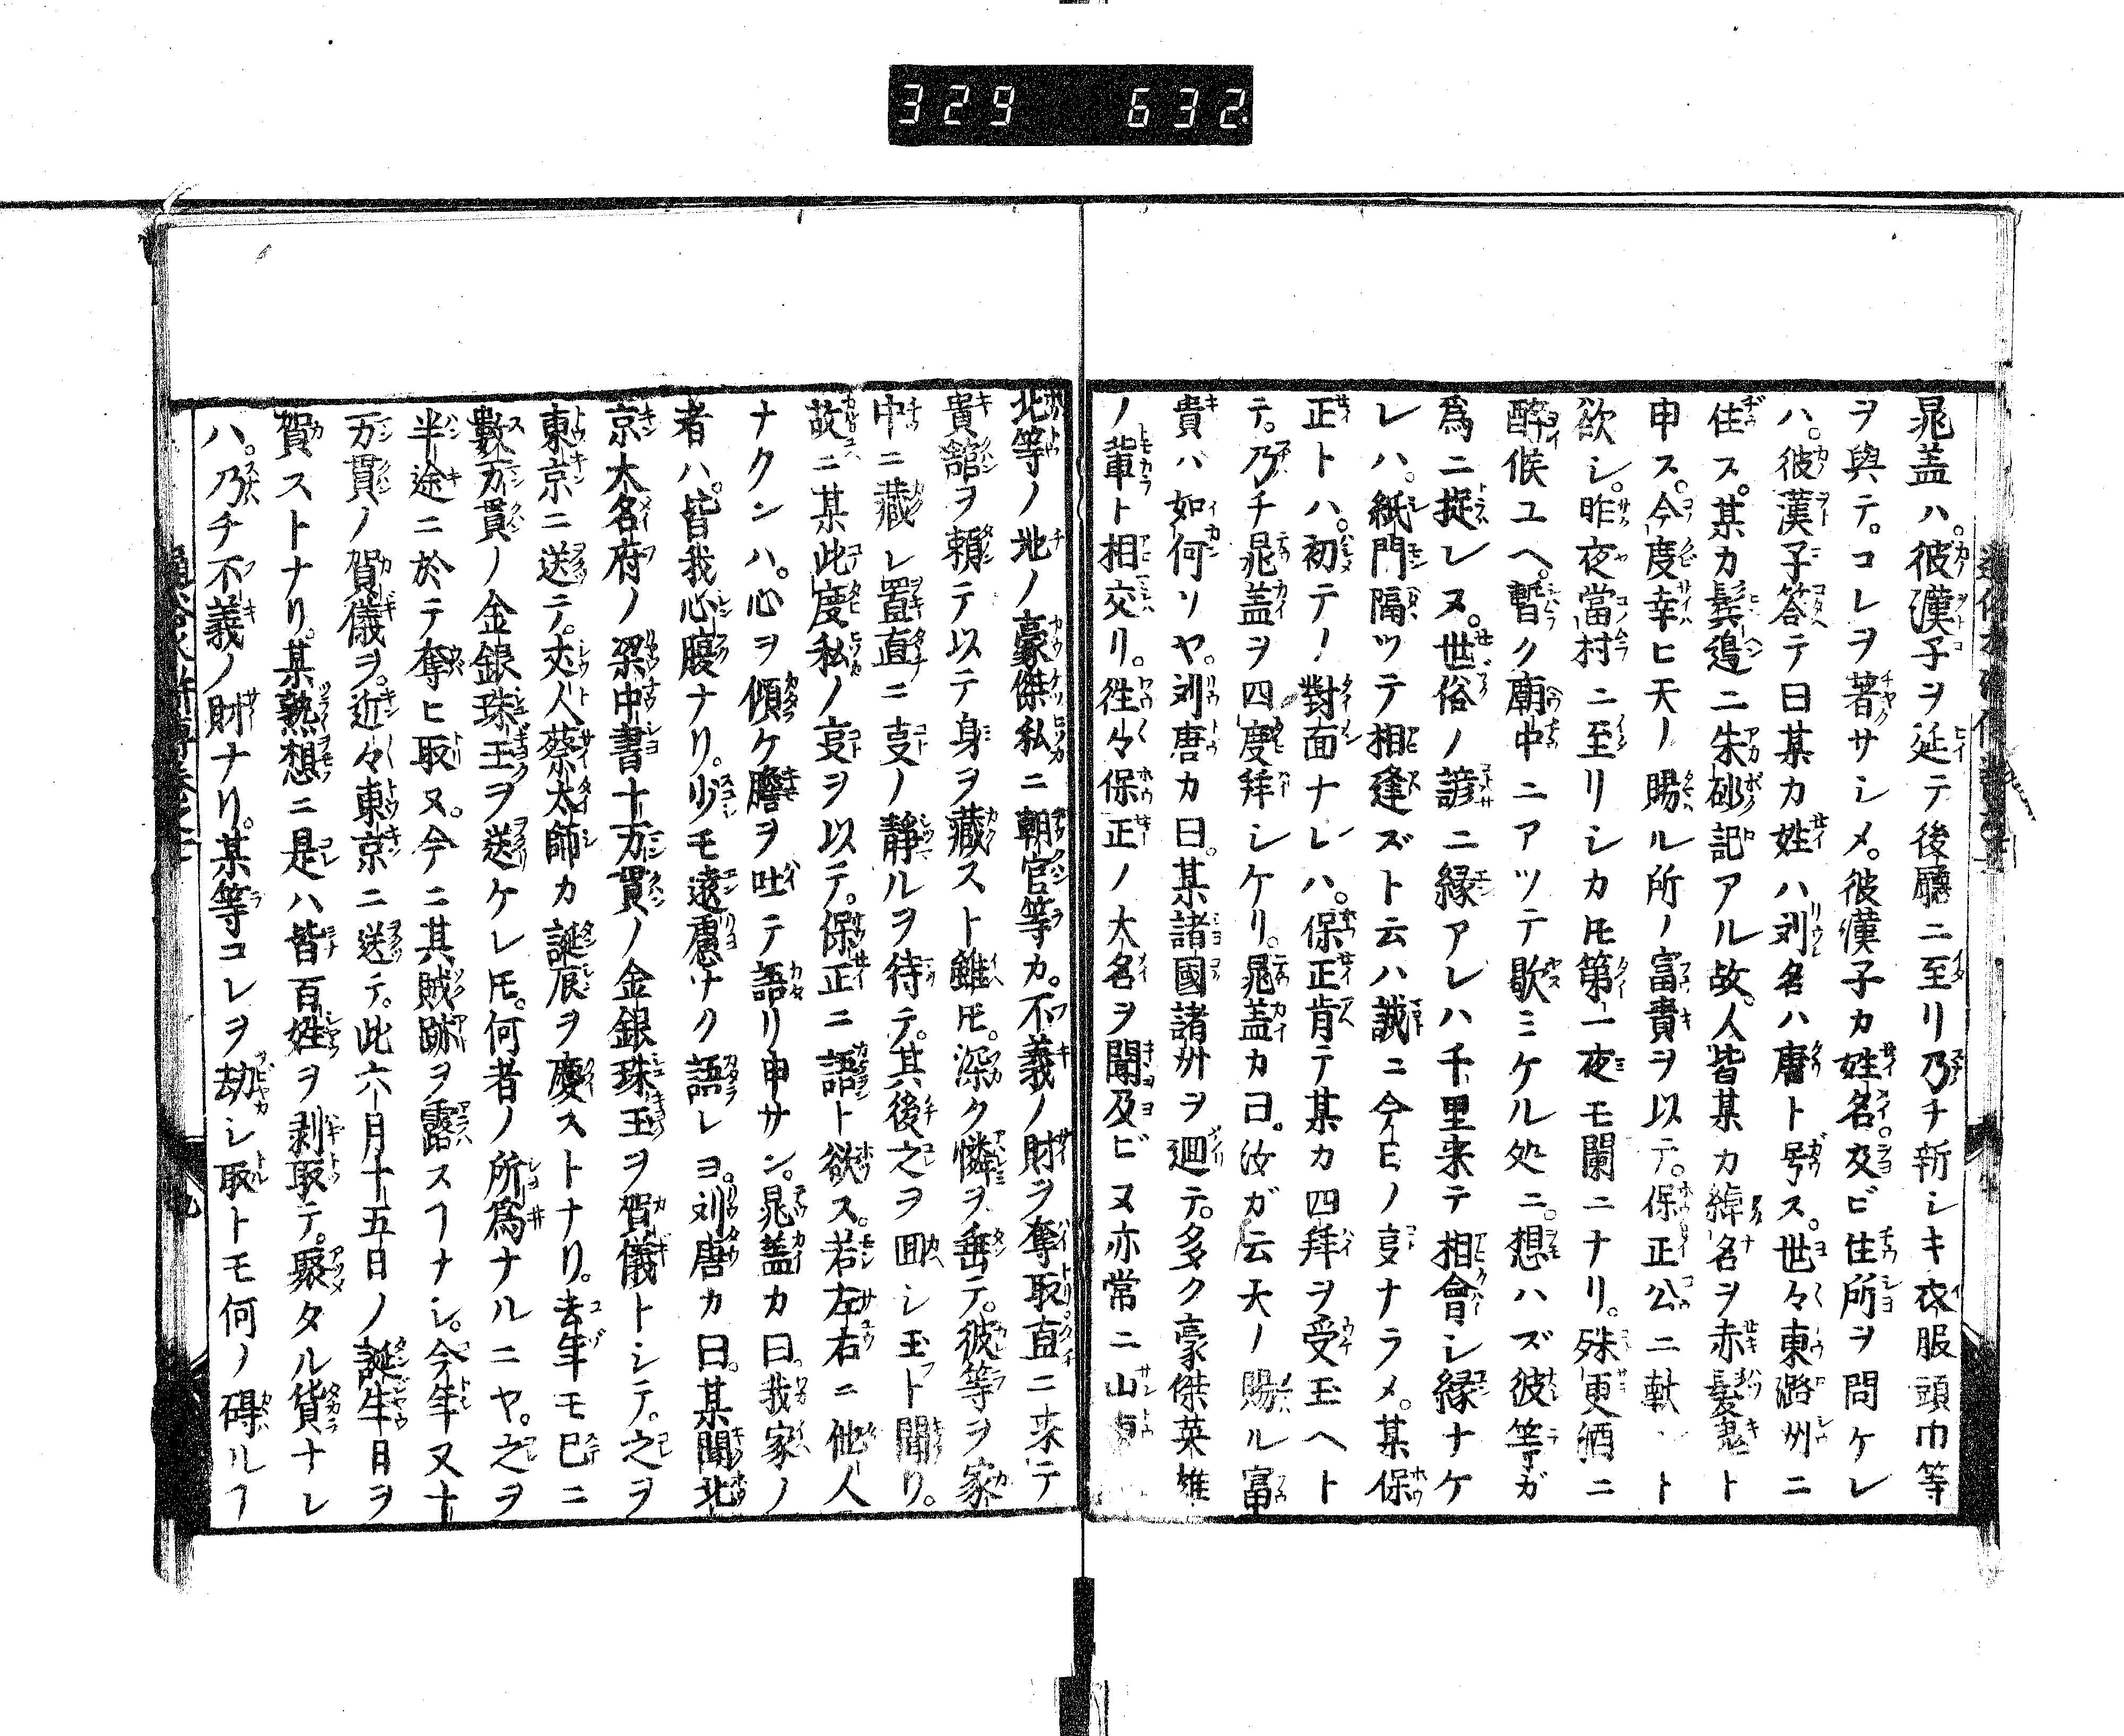 329 632
晁盖ハ。彼漢子ヲ延テ後廳ニ至リ乃チ新シキ衣服頭巾等
ヲ與テ。コレヲ著サシメ。彼漢子カ姓名。及ビ住所ヲ問ケレ
ハ。彼漢子答テ曰某カ姓ハ刘名ハ唐ト号ス。世々東潞州ニ
住ス。某カ鬂邉ニ朱砂記アル故。人皆某カ綽名ヲ赤髪鬼ト
申ス。今度幸ヒ天ノ賜ル所ノ富貴ヲ以テ。保正公ニ献ント
欲シ。昨夜當村ニ至リシカ𪜈第一夜モ闌ニナリ。殊更酒ニ
醉候ユヘ。暫ク廟中ニアツテ歇ミケル処ニ。想ハズ彼等ガ
爲ニ捉レヌ。世俗ノ諺ニ縁アレハ千里来テ相會シ縁ナケ
レハ。紙門隔ツテ相逢ズト云ハ誠ニ今日ノ叓ナラメ。某保
正トハ。初テノ對面ナレハ。保正肯テ某カ四拜ヲ受玉ヘト
テ。乃チ晁盖ヲ四度拜シケリ。晁盖カ曰。汝ガ云天ノ賜ル富
貴ハ如何ソヤ。刘唐カ曰。某諸國諸州ヲ廻テ。多ク豪傑英雄
ノ輩ト相交リ。徃々保正ノ大名ヲ聞及ビヌ亦常ニ山東
北等ノ地ノ豪傑私ニ朝官等カ。不義ノ財ヲ奪取直ニ来テ
貴舘ヲ頼テ以テ身ヲ藏スト雖𪜈。深ク憐ヲ垂テ。彼等ヲ家
中ニ藏レ置直ニ叓ノ靜ルヲ待テ。其後之ヲ囬シ玉フト聞リ。
故ニ某此度私ノ叓ヲ以テ。保正ニ語ト欲ス。若左右ニ他人
ナクンハ。心ヲ傾ケ膽ヲ吐テ語リ申サン。晁盖カ曰。我家ノ
者ハ。皆我心腹ナリ。少モ遠慮ナク語レヨ。刘唐カ曰。某聞北
京大名府ノ梁中書十万貫ノ金銀珠玉ヲ賀儀トシテ。之ヲ
東京ニ送テ。丈人蔡太師カ誕辰ヲ慶ストナリ。去年モ已ニ
數万貫ノ金銀珠玉ヲ送ケレ𪜈。何者ノ所爲ナルニヤ。之ヲ
半途ニ於テ奪ヒ取ヌ。今ニ其賊跡ヲ露スヿナシ。今年又十
万貫ノ賀儀ヲ。近々東京ニ送テ。此六月十五日ノ誕生日ヲ
賀ストナリ。某熟想ニ是ハ皆百姓ヲ剥取テ。聚タル貨ナレ
ハ。乃チ不義ノ財ナリ。某等コレヲ劫シ取トモ何ノ碍ルヿ